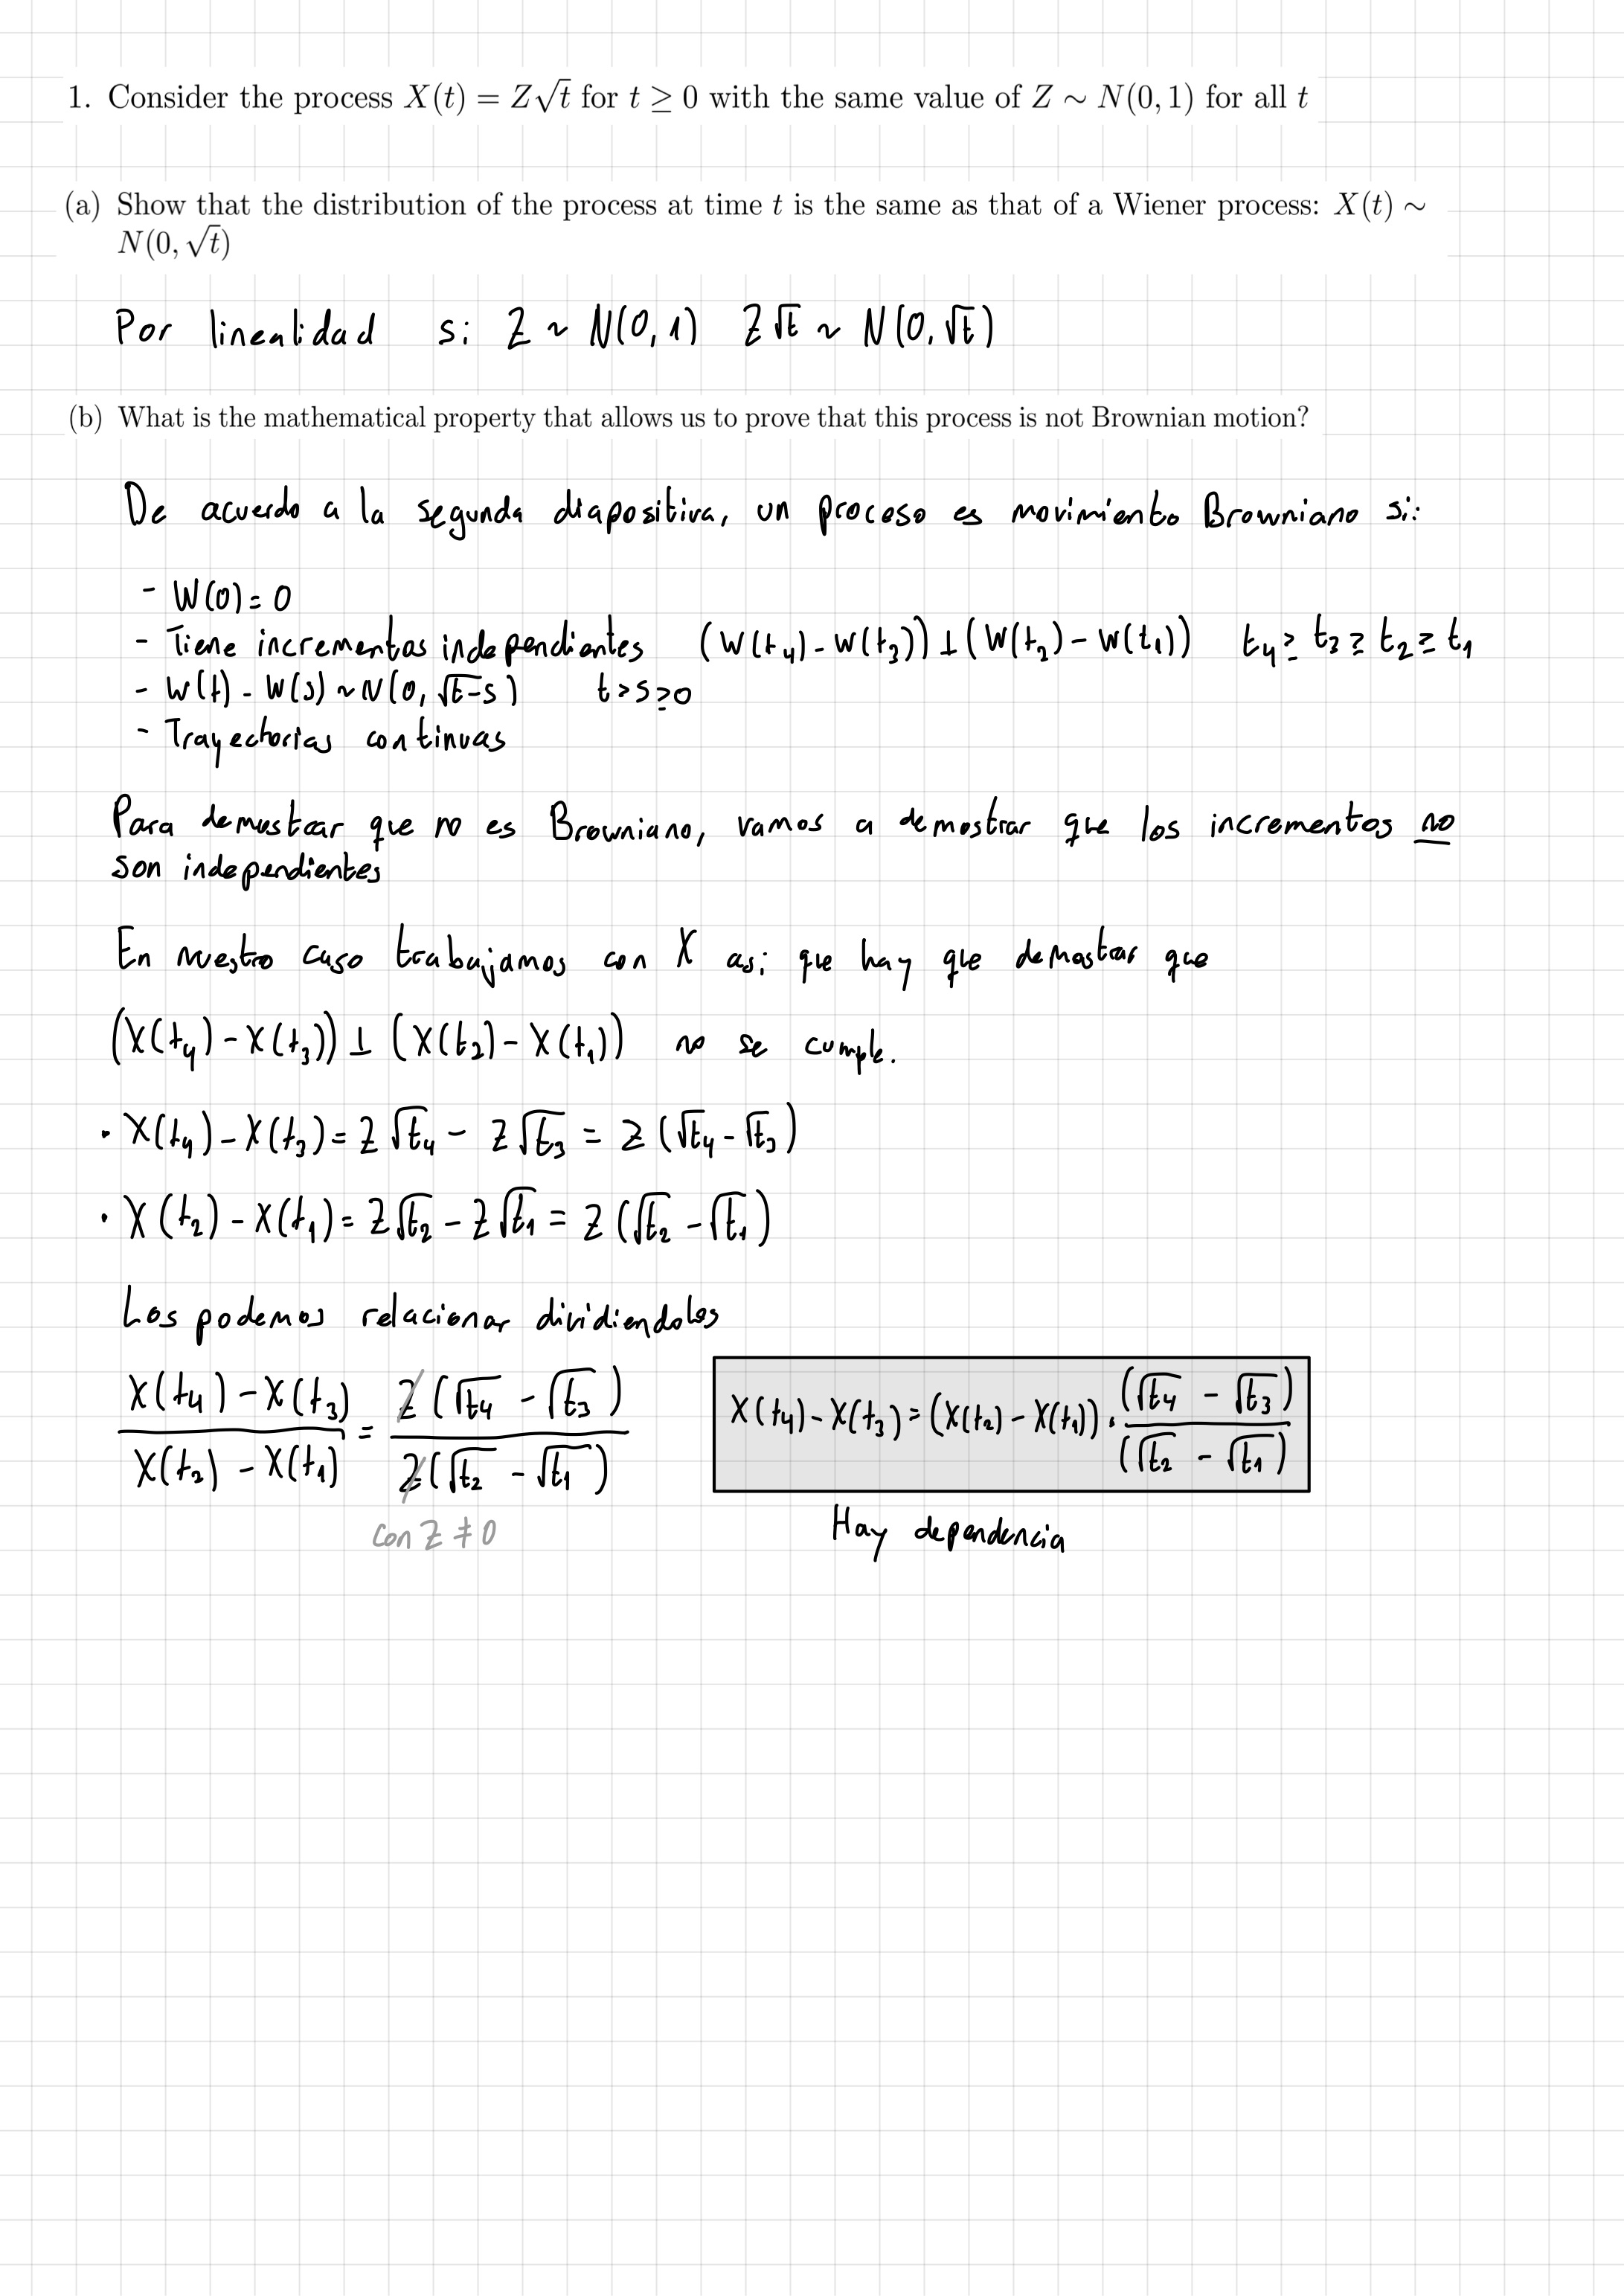 1. Consider the process X(t) = Z√t for t ≥ 0 with the same value of Z ∼ N(0, 1) for all t
(a) Show that the distribution of the process at time t is the same as that of a Wiener process: X(t) ∼
N(0, √t)
Por linealidad si Z ~ N(0,1) Z√t ~ N(0,√t)
(b) What is the mathematical property that allows us to prove that this process is not Brownian motion?
De acuerdo a la segunda diapositiva, un proceso es movimiento Browniano si:
- W(0) = 0
- Tiene incrementos independientes (W(t₄) - W(t₃)) ⊥ (W(t₂) - W(t₁)) t₄ ≥ t₃ ≥ t₂ ≥ t₁
- W(t) - W(s) ~ N(0, √t-s) t > s ≥ 0
- Trayectorias continuas
Para demostrar que no es Browniano, vamos a demostrar que los incrementos no
son independientes
En nuestro caso trabajamos con X asi que hay que demostrar que
(X(t₄) - X(t₃)) ⊥ (X(t₂) - X(t₁)) no se cumple.
• X(t₄) - X(t₃) = Z√t₄ - Z√t₃ = Z(√t₄ - √t₃)
• X(t₂) - X(t₁) = Z√t₂ - Z√t₁ = Z(√t₂ - √t₁)
Los podemos relacionar dividiendolos
(X(t₄) - X(t₃)) / (X(t₂) - X(t₁)) = Z(√t₄ - √t₃) / Z(√t₂ - √t₁)
X(t₄) - X(t₃) = (X(t₂) - X(t₁)) · (√t₄ - √t₃) / (√t₂ - √t₁)
con Z ≠ 0
Hay dependencia